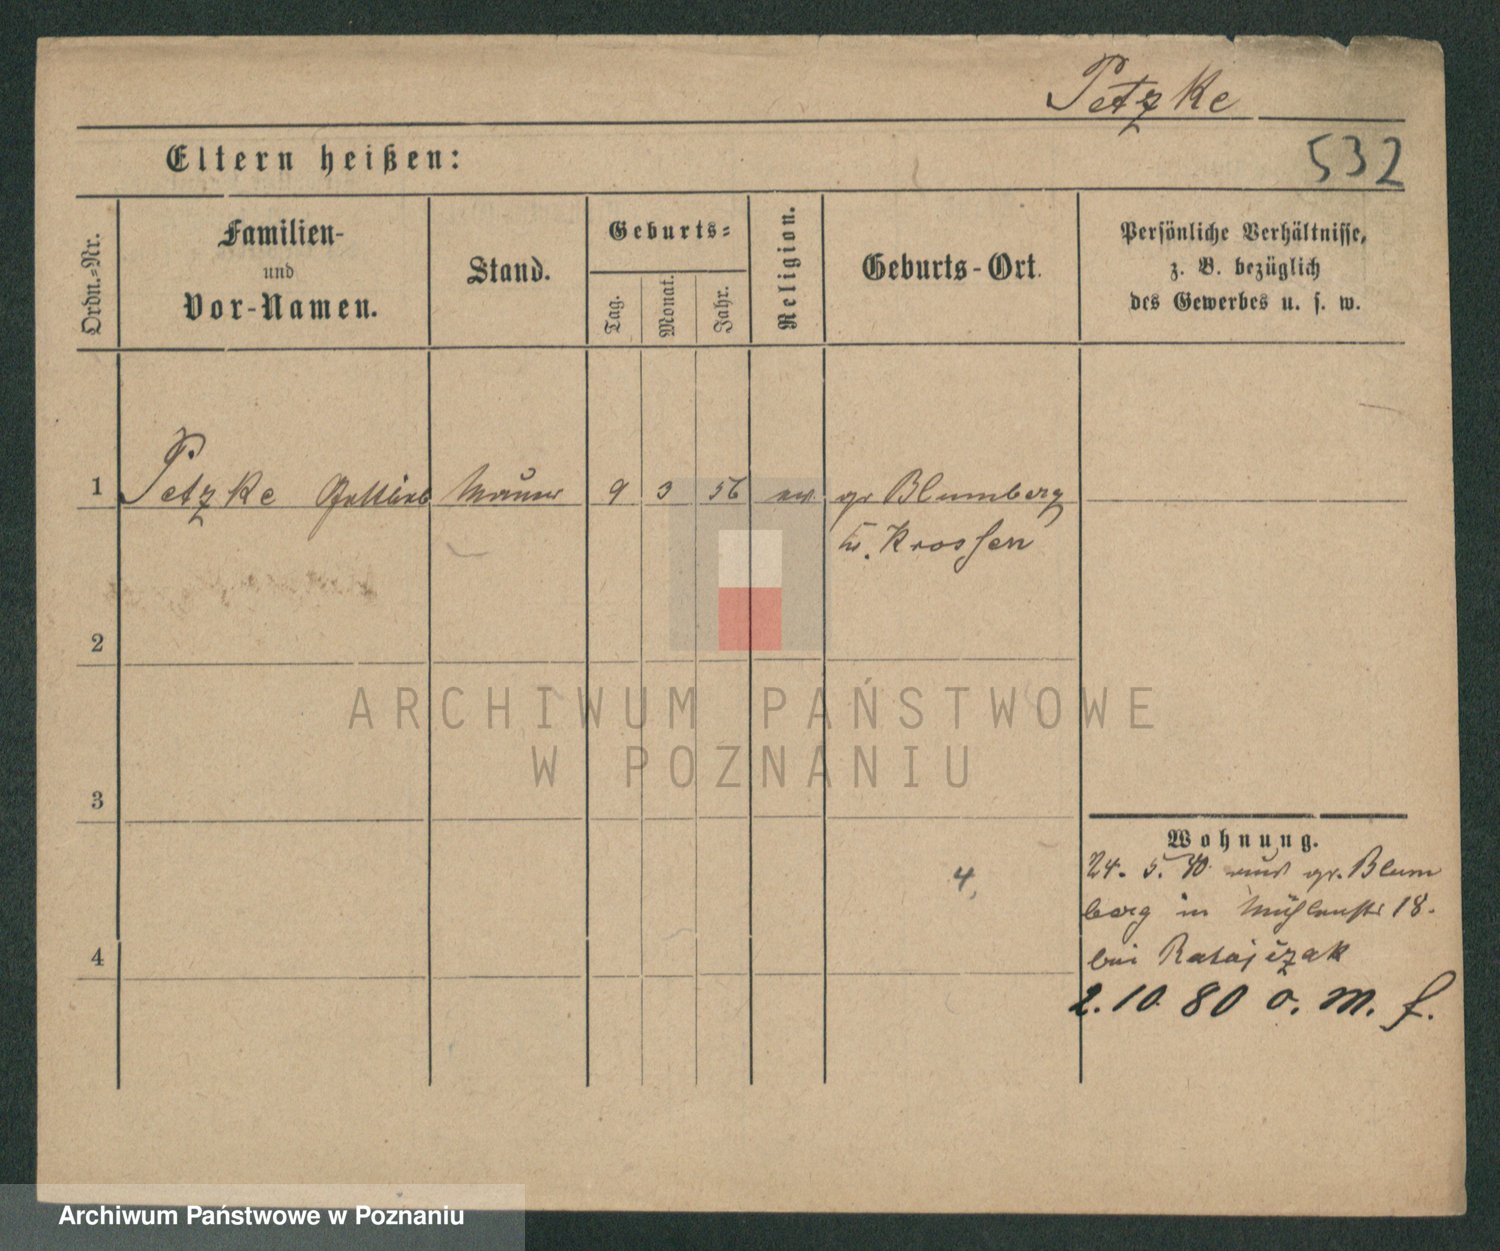 Petzke
Eltern heißen:
532
Ordn.-Nr.
Familien-
und
Vor-Namen.
Stand.
Geburts-
Tag.
Monat.
Jahr.
Religion.
Geburts-Ort.
Persönliche Verhältnisse,
z. B. bezüglich
des Gewerbes u. s. w.
1 Petzke Gottlieb Maurer 9 3 56 ev. gr Blumberg
Kr. Krossen
2
3
4
Wohnung.
24. 5. 80 aus gr. Blum
berg in Mühlenstr 18.
bei Ratajczak
2. 10. 80 o. M. f.
4,
ARCHIWUM PAŃSTWOWE
W POZNANIU
Archiwum Państwowe w Poznaniu